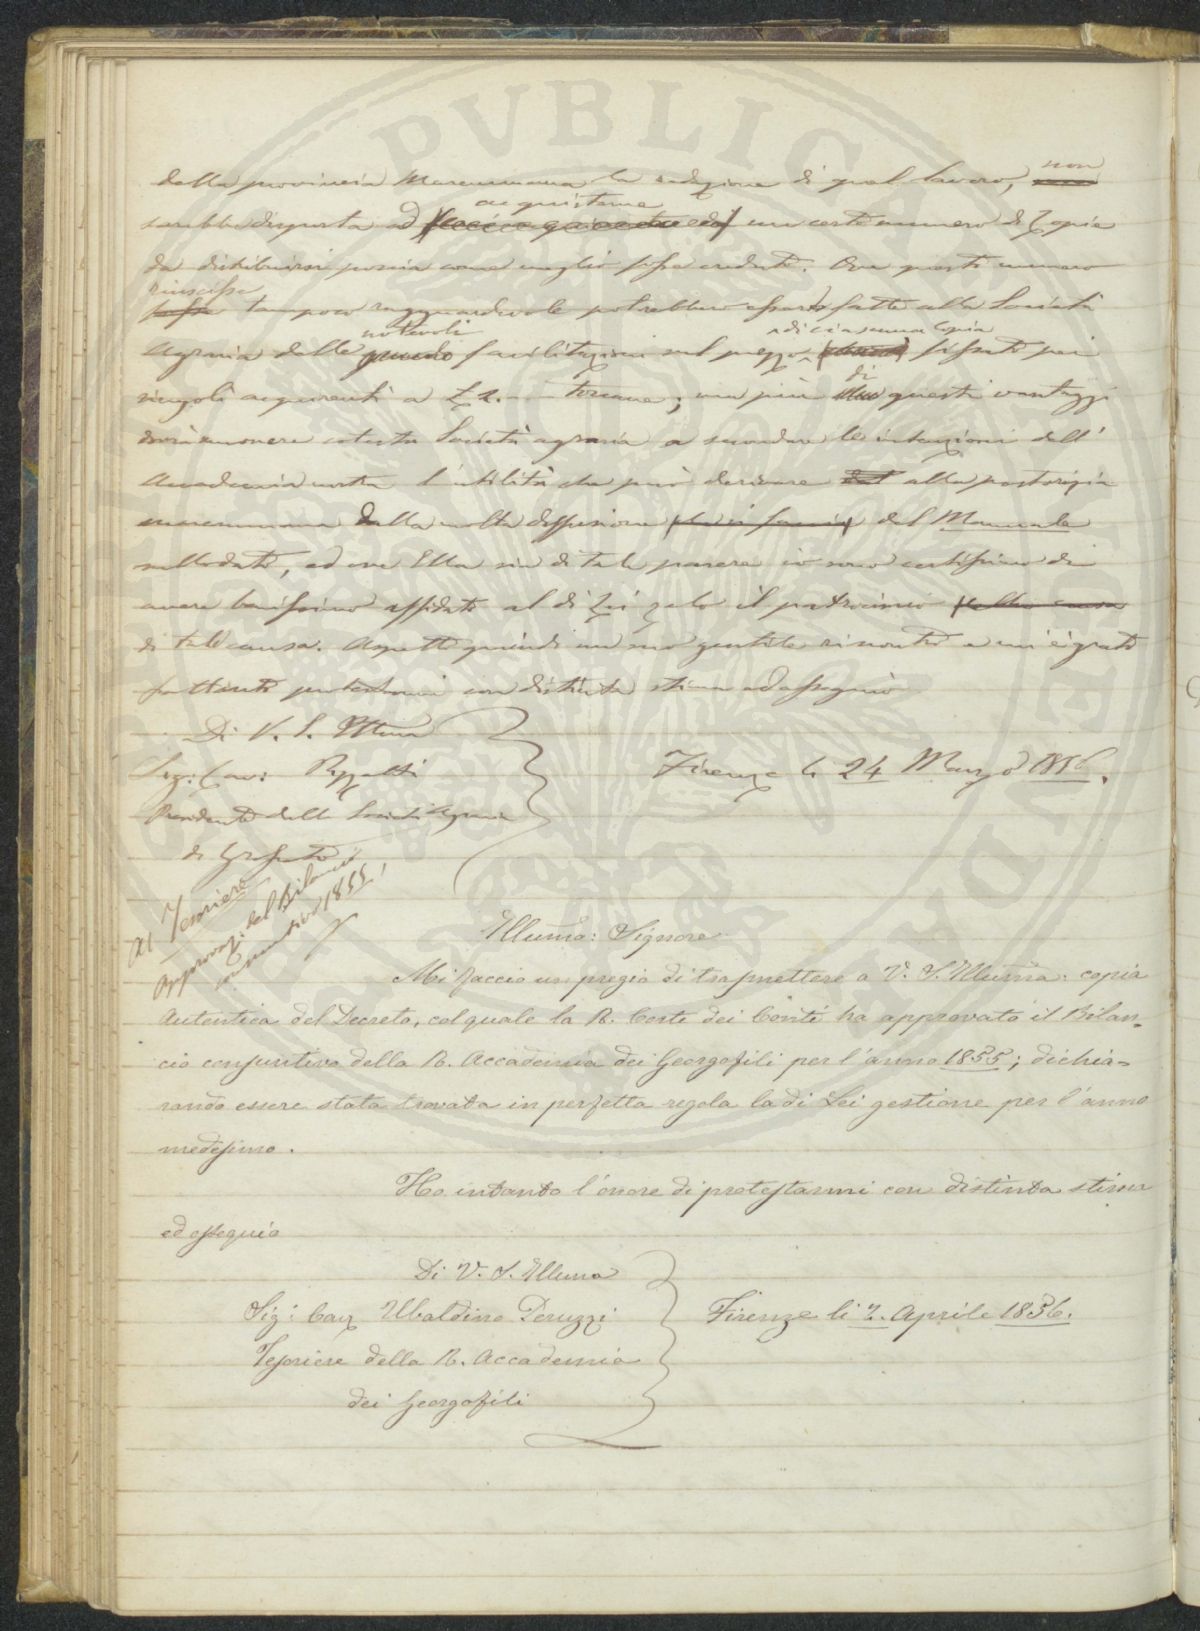 della provincia Maremmana la redazione di quel lavoro, non
sarebbe disposta ad acquistarne un certo numero di Copie
da distribuirsi poscia come meglio fosse creduto. Ove questo numero
riuscisse
fosse tampoco ragguardevole potrebbero essere fatte alla Società
Agraria delle notevoli facilitazioni sul prezzo di ciascuna Copia fissato pei
singoli acquirenti a £ 2. toscane; ma più di questi vantaggi
dovrà muovere cotesta Società agraria a secondare le intenzioni dell'
Accademia nostra l'utilità che può derivare alla pastorizia
maremmana dalla molta diffusione del Manuale
sullodato, ed ove Ella sia di tale parere io sono certissimo di
avere benissimo affidato al di Lei zelo il patrocinio
di tale causa. Aspetto quindi un suo gentile riscontro e mi è grato
frattanto protestarmi con distinta stima ed ossequio
Di V. S. Illma
Sig: Cav:
Presidente della Società Agraria
di Grosseto
Firenze li 24 Marzo 1856.
Al Tesoriere
Approvaz: del Bilancio
consuntivo 1855.
Illumo: Signore
Mi faccio un pregio di trasmettere a V. S. Illuma: copia
Autentica del Decreto, col quale la R. Corte dei Conti ha approvato il Bilan-
cio consuntivo della R. Accademia dei Georgofili per l'anno 1855; dichia-
rando essere stata trovata in perfetta regola la di Lei gestione per l'anno
medesimo.
Ho intanto l'onore di protestarmi con distinta stima
ed ossequio
Di V. S. Illuma
Sig: Cav Ubaldino Peruzzi
Tesoriere della R. Accademia
dei Georgofili
Firenze li 2. Aprile 1856.